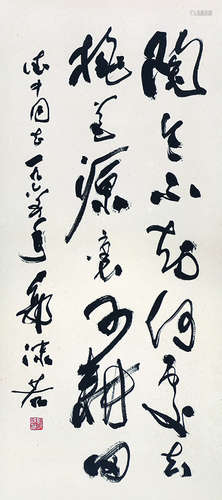 陶令不知何處去
桃花源裏可耕田
同志 一九六年 郭沫若